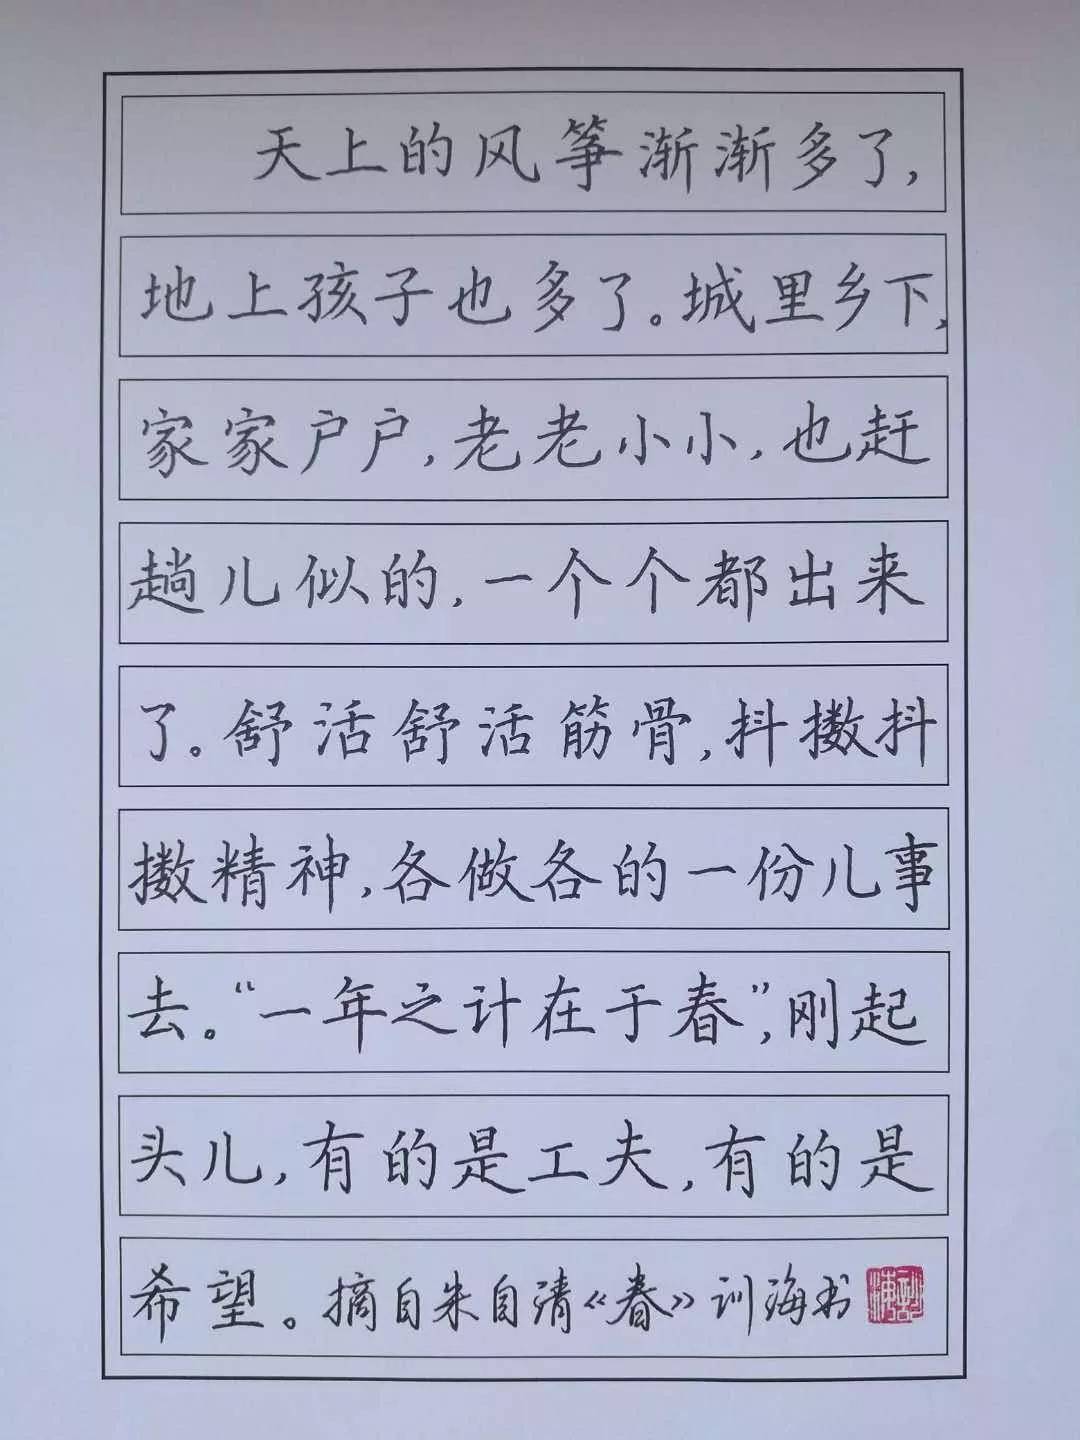 天上的风筝渐渐多了,
地上孩子也多了。城里乡下,
家家户户,老老小小,也赶
趟儿似的,一个个都出来
了。舒活舒活筋骨,抖擞抖
擞精神,各做各的一份儿事
去。“一年之计在于春”,刚起
头儿,有的是工夫,有的是
希望。摘自朱自清《春》训海书